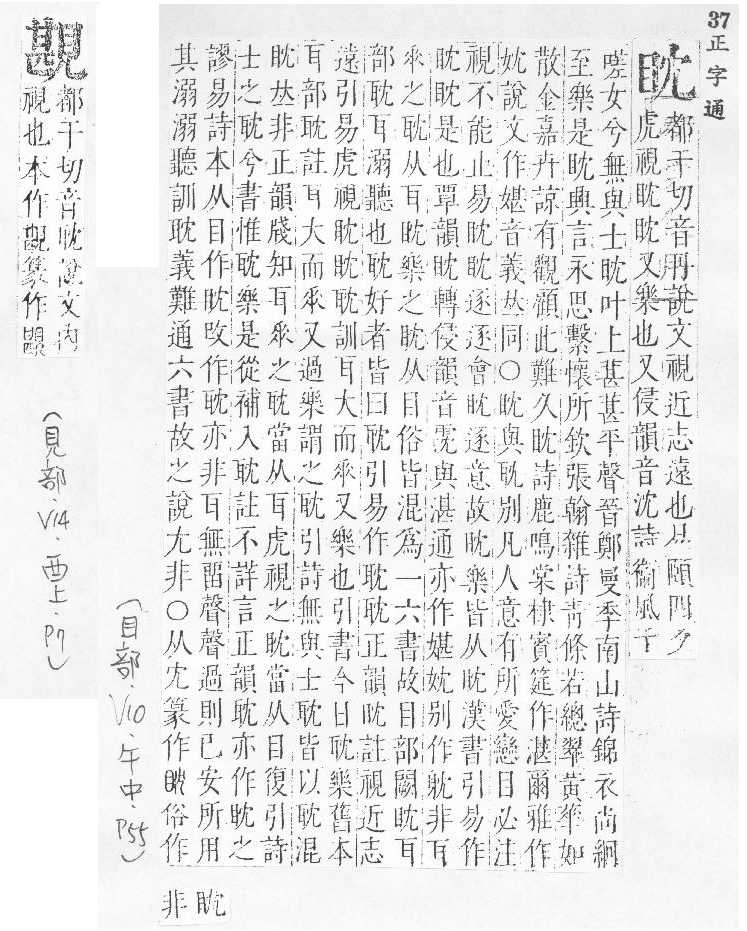 37
正字通
眈
都干切音丹說文視近志遠也易頤四爻
虎視眈眈又樂也又侵韻音沈詩衞風于
嗟女兮無與士眈叶上葚葚平聲晉鄭曼季南山詩錦衣尚絅
至樂是眈興言永思繫懷所欽張翰雜詩靑條若總翠黃華如
散金嘉卉諒有觀顧此難久眈詩鹿鳴棠棣賓筵作湛爾雅作
妉說文作媅音義𠀤同○眈與耽別凡人意有所愛戀目必注
視不能止易眈眈逐逐會眈逐意故眈樂皆从眈漢書引易作
眈眈是也覃韻眈轉侵韻音霃與湛通亦作媅妉別作躭非耳
𠂹之耽从耳眈樂之眈从目俗皆混爲一六書故目部闕眈耳
部耽耳溺聽也耽好者皆曰耽引易作耽耽正韻眈註視近志
遠引易虎視眈眈耽訓耳大而𠂹又樂也引書今日耽樂舊本
耳部耽註耳大而𠂹又過樂謂之耽引詩無與士耽皆以耽混
眈𠀤非正韻牋知耳𠂹之耽當从耳虎視之眈當从目復引詩
士之耽兮書惟耽樂是從補入耽註不詳言正韻耽亦作眈之
謬易詩本从目作眈攺作耽亦非耳無畱聲聲過則已安所用
其溺溺聽訓耽義難通六書故之說尤非○从冘篆作眈俗作
眈非
(目部·V10·午中·P55)
覴
都干切音眈說文內
視也本作覴篆作䙴
(見部·V14·酉上·P7)